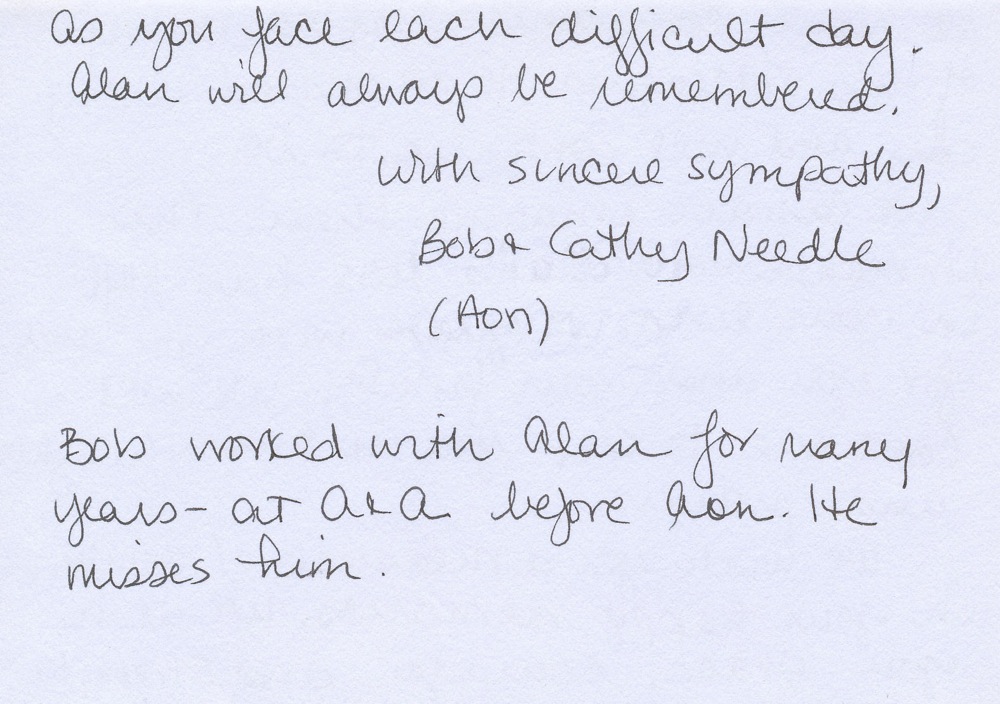 as you face each difficult day.
Alan will always be remembered.
With sincere sympathy,
Bob & Cathy Needle
(Aon)
Bob worked with Alan for many
years - at A&A before Aon. He
misses him.